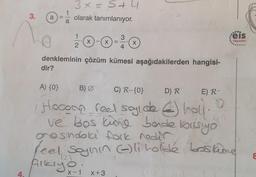 3x = 5+4
3. (a) = 1/a olarak tanımlanıyor.
1/2 (x) - (x) = 3/4 (x)
eis
denkleminin çözüm kümesi aşağıdakilerden hangisi-
dir?
A) {0} B) ∅ C) R-{0} D) R E) R⁻
Hocam reel sayıda
ve boş küme bende karışıyo
arasındaki fark nedir
reel sayının (-)li halide boş küme
çıkıyo.
4. x-1 x+3